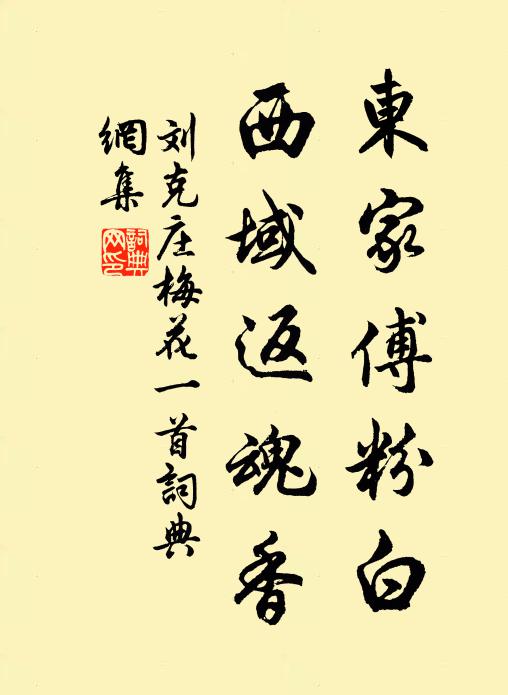 東家傅粉白
西域返魂香
刘克庄梅花一首詞典
網集
詞典
网印